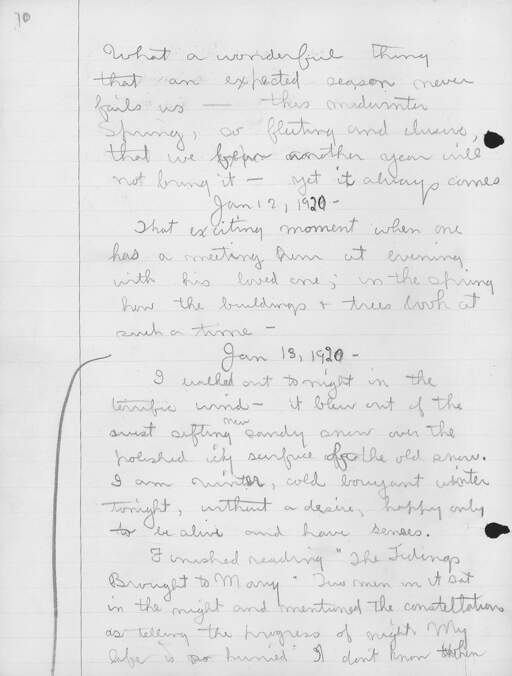 70
What a wonderful thing
that an expected season never
fails us — this midwinter
Spring, so fleeting and elusive,
that we fear another year will
not bring it — yet it always comes
Jan 12, 1920 -
That exciting moment when one
has a meeting here at evening
with his loved one; in the spring
how the buildings + trees look at
such a time -
Jan 13, 1920 -
I walked out tonight in the
terrific wind - it blew out of the
west sifting new sandy snow over the
polished icy surface of the old snow.
I am winter, cold bouyant winter
tonight, without a desire, happy only
to be alive and have senses.
Finished reading "The Tidings
Brought to Mary" Two men in it sat
in the night and mentioned the constellations
as telling the progress of night. My
life is so hurried I don't know when